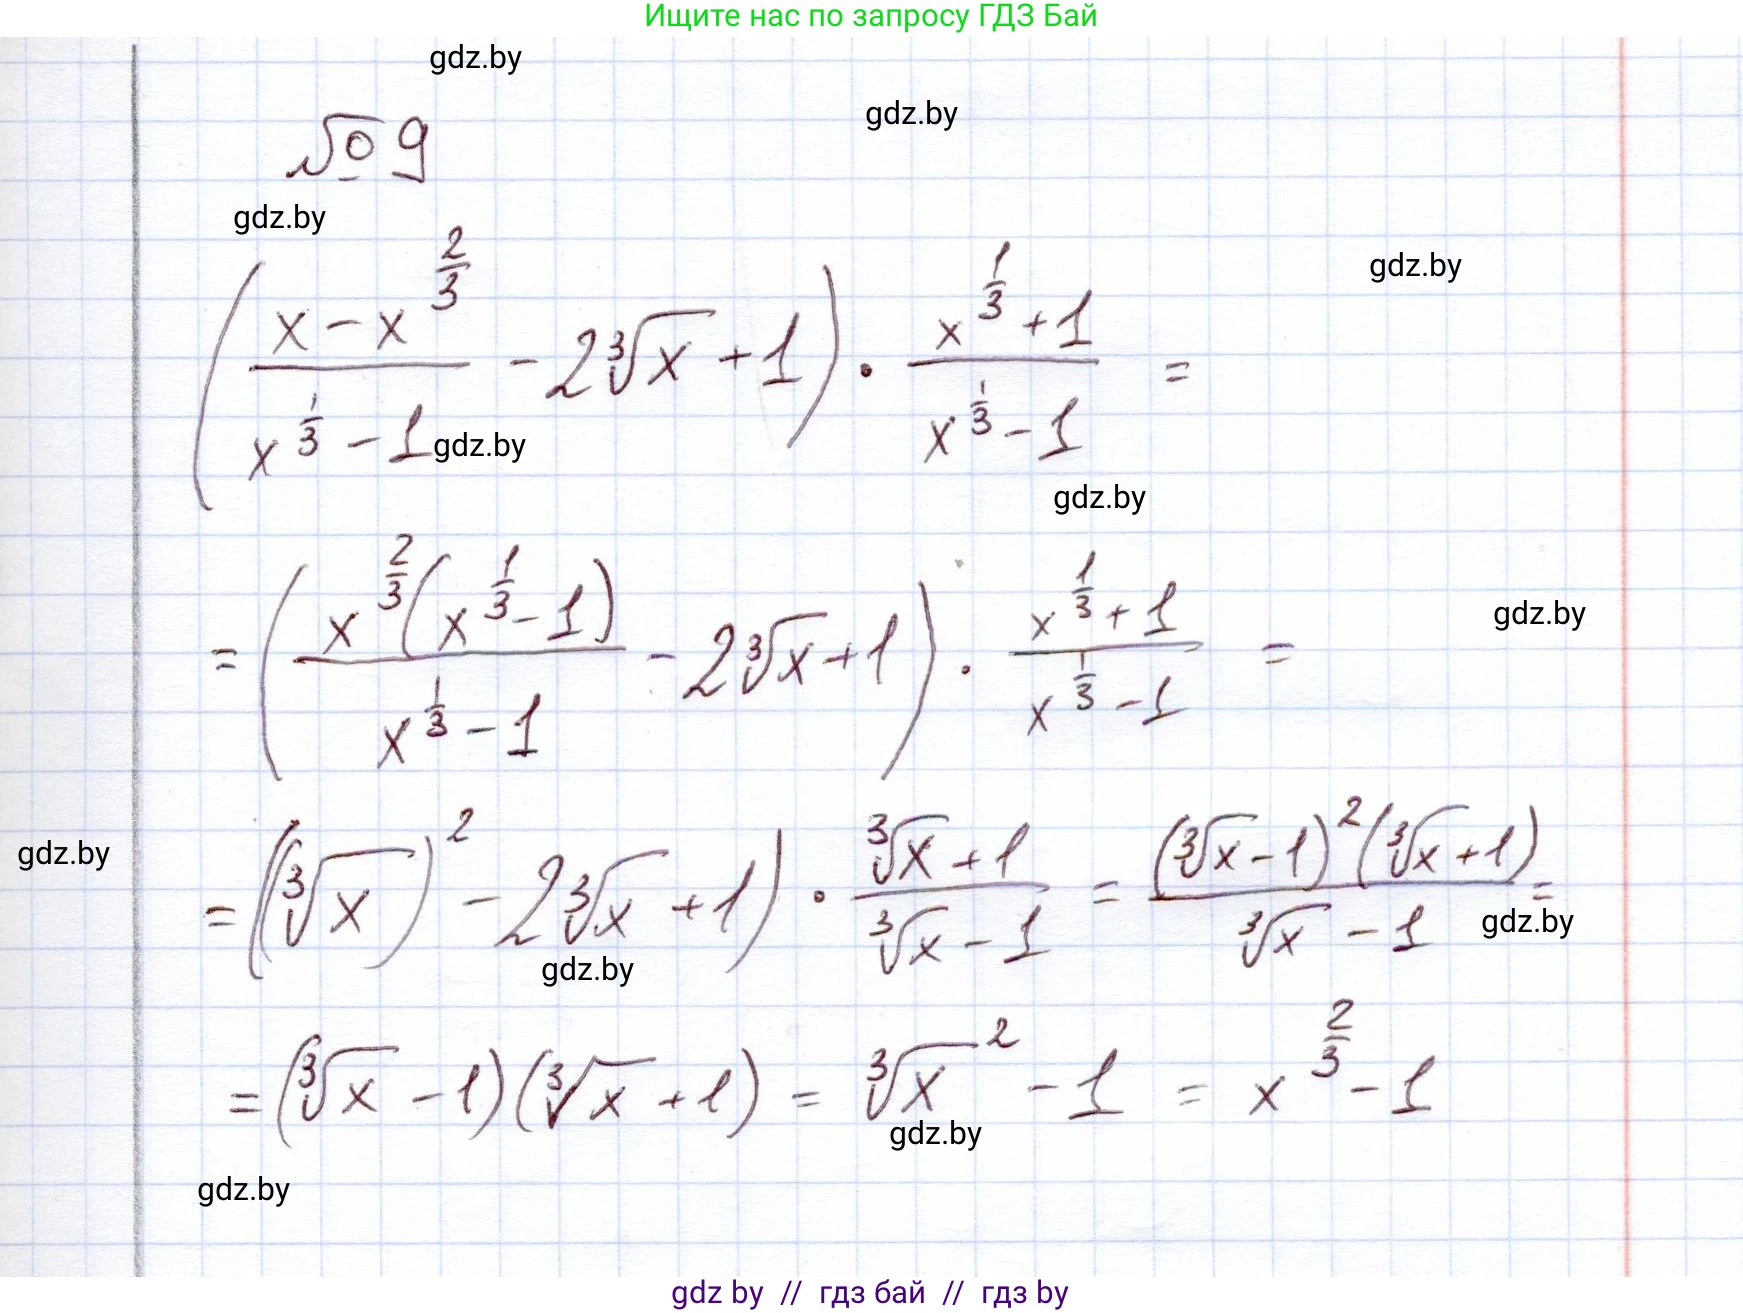 Ищите нас по запросу ГДЗ Бай
gdz.by
gdz.by
№ 9
gdz.by
gdz.by
( (x - x^(2/3)) / (x^(1/3) - 1) - 2∛x + 1 ) · (x^(1/3) + 1) / (x^(1/3) - 1) =
gdz.by
gdz.by
= ( x^(2/3) (x^(1/3) - 1) / (x^(1/3) - 1) - 2∛x + 1 ) · (x^(1/3) + 1) / (x^(1/3) - 1) =
gdz.by
gdz.by
= ( (∛x)^2 - 2∛x + 1 ) · (∛x + 1) / (∛x - 1) = (∛x - 1)^2 (∛x + 1) / (∛x - 1) =
gdz.by
gdz.by
= (∛x - 1)(∛x + 1) = ∛x^2 - 1 = x^(2/3) - 1
gdz.by
gdz.by
gdz by // гдз бай // гдз by